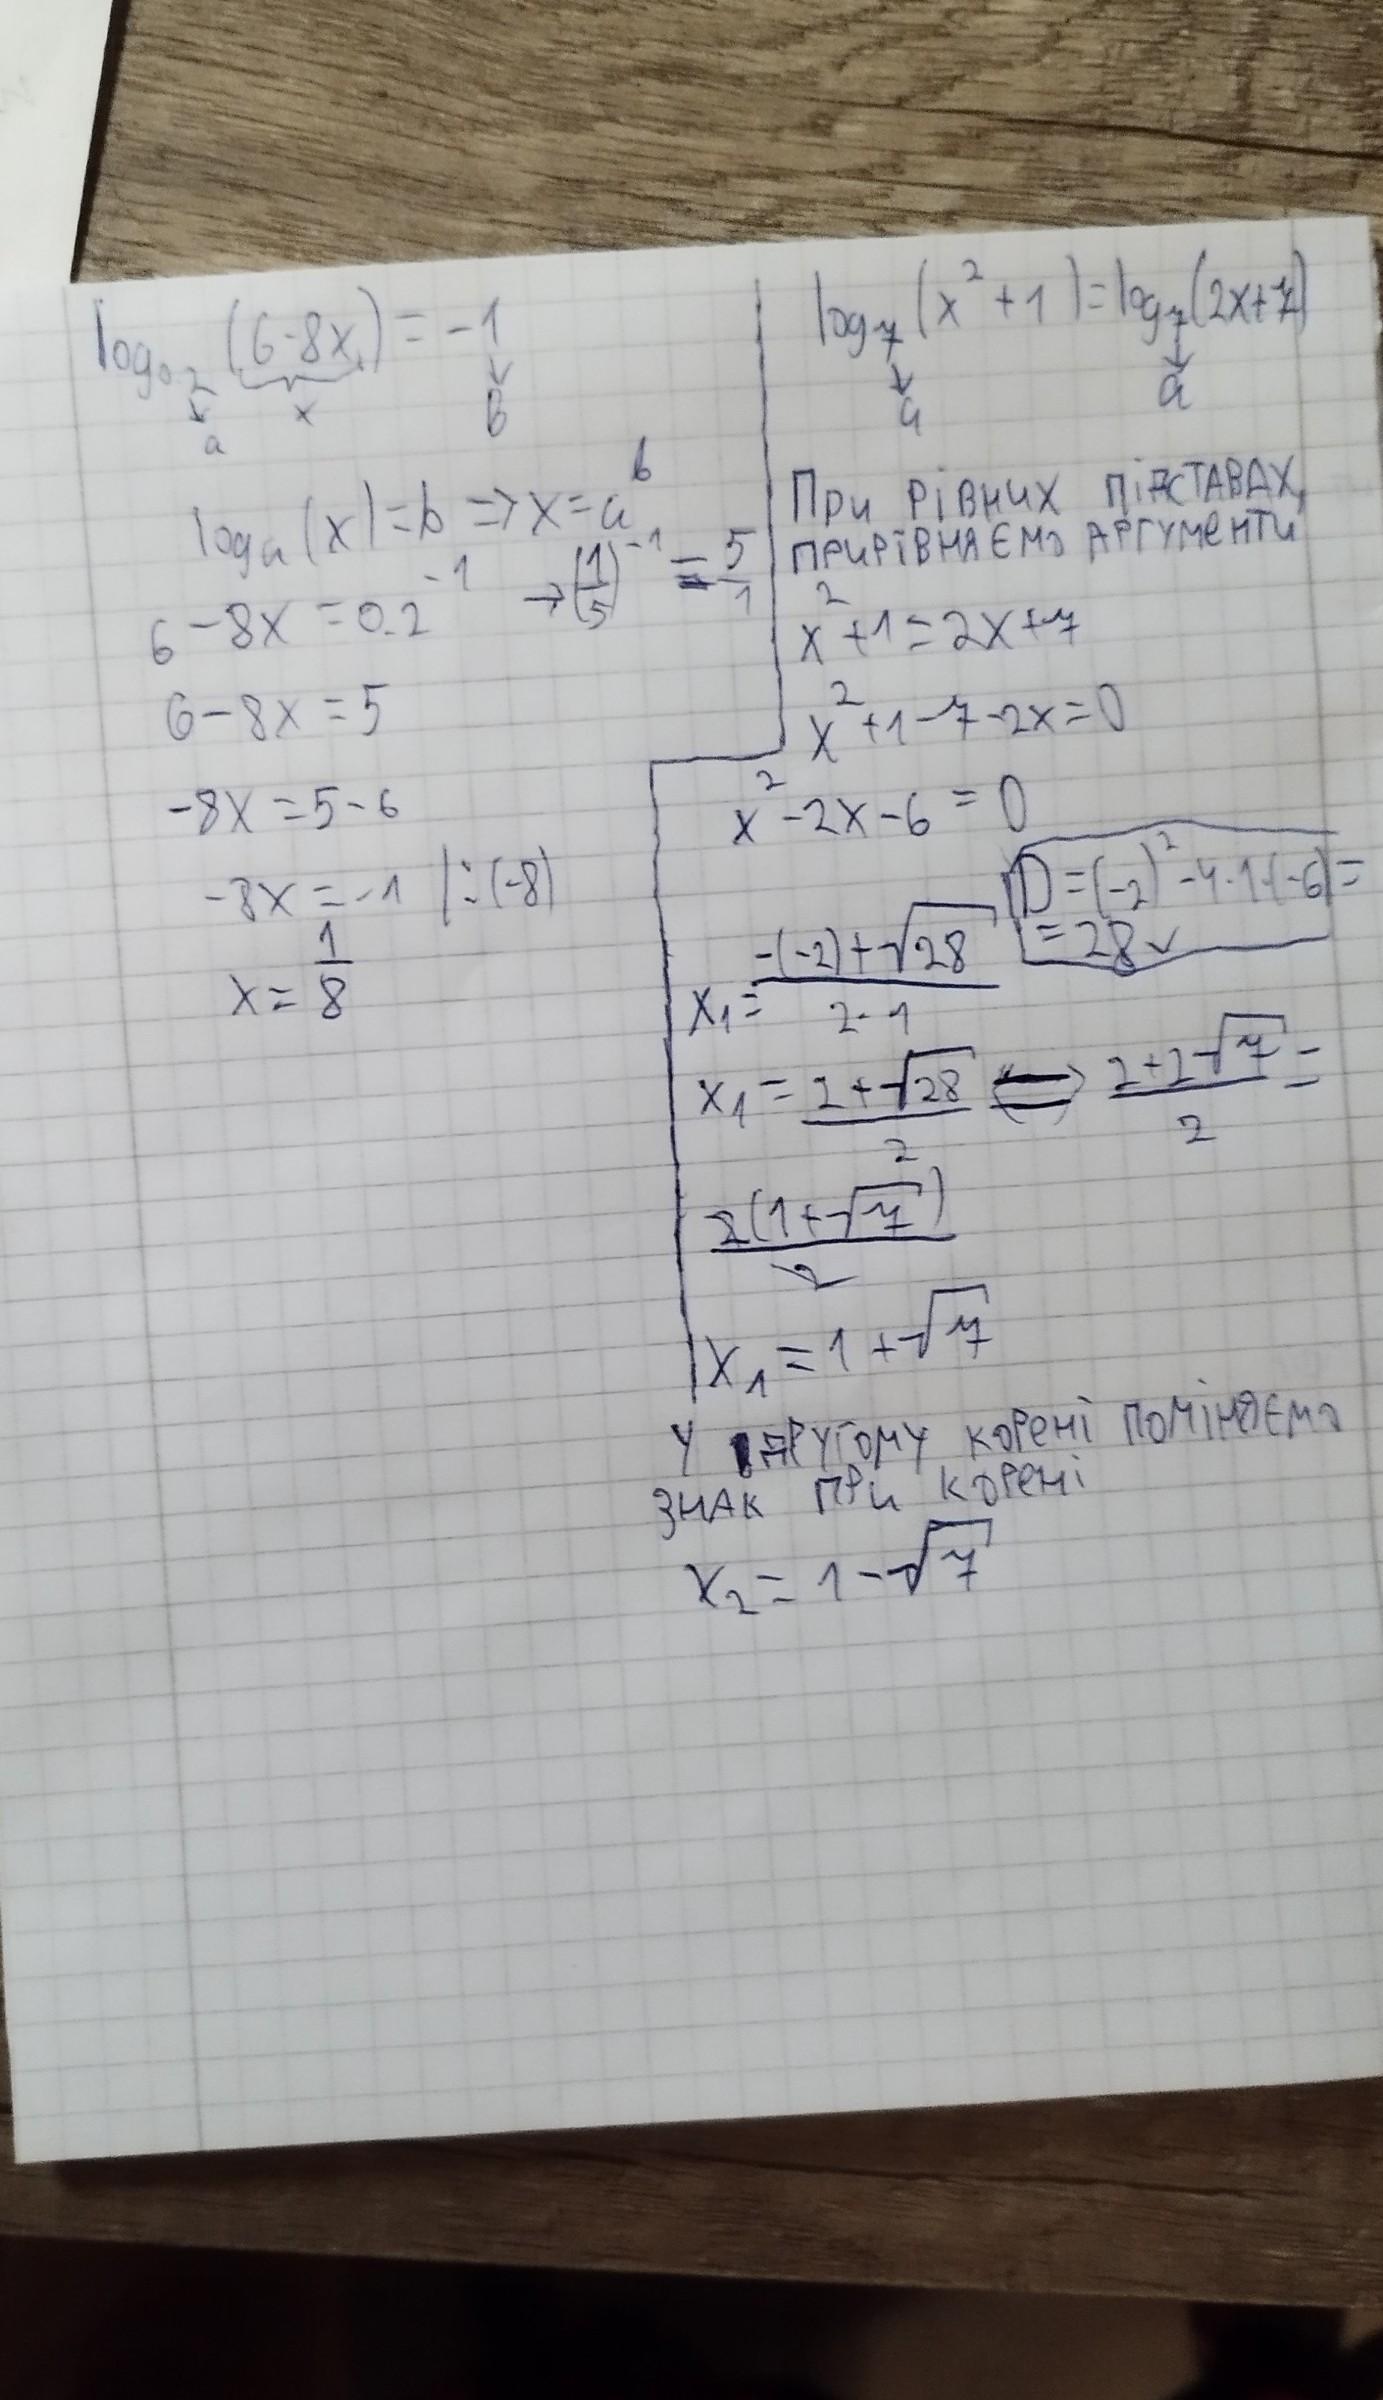 log₀.₂ (6-8x) = -1
a x B
logₐ(x) = b => x = aᵇ
6 - 8x = 0.2⁻¹ → (1/5)⁻¹ = 5/1
6 - 8x = 5
-8x = 5 - 6
-8x = -1 | : (-8)
x = 1/8
log₇(x² + 1) = log₇(2x+7)
a a
При рівних підставах,
прирівняємо аргументи
x² + 1 = 2x + 7
x² + 1 - 7 - 2x = 0
x² - 2x - 6 = 0
D = (-2)² - 4·1·(-6) =
= 28
x₁ = (-(-2) + √28)/(2·1)
x₁ = (2 + √28)/2 <=> (2 + 2√7)/2 =
2(1 + √7)/2
x₁ = 1 + √7
У другому корені поміняємо
знак при корені
x₂ = 1 - √7